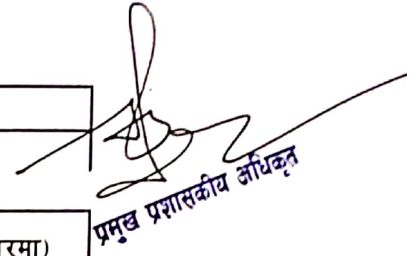 प्रमुख प्रशासकीय अधिकृत
रमा)